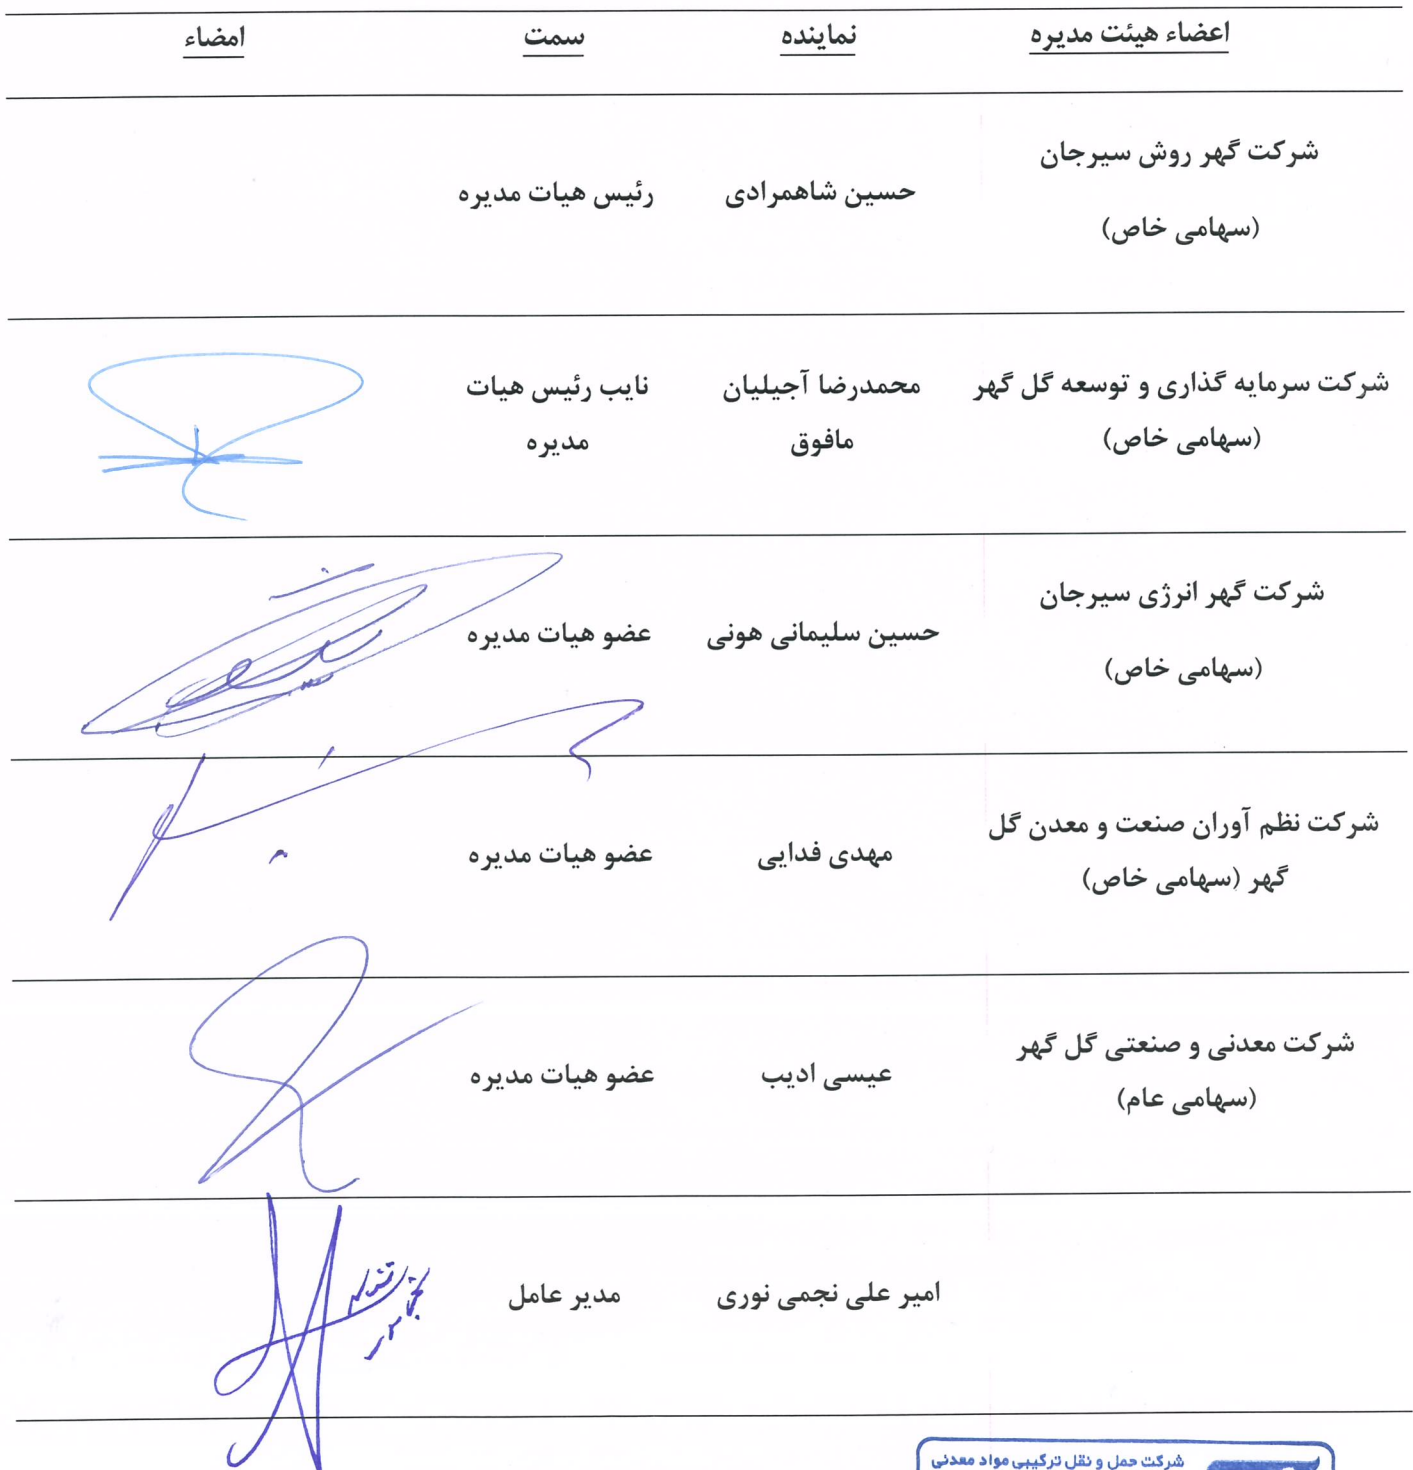 اعضاء هیئت مدیره نماینده سمت امضاء
شرکت گهر روش سیرجان
(سهامی خاص)
حسین شاهمرادی
رئیس هیات مدیره
شرکت سرمایه گذاری و توسعه گل گهر
(سهامی خاص)
محمدرضا آجیلیان
مافوق
نایب رئیس هیات
مدیره
شرکت گهر انرژی سیرجان
(سهامی خاص)
حسین سلیمانی هونی
عضو هیات مدیره
شرکت نظم آوران صنعت و معدن گل
گهر (سهامی خاص)
مهدی فدایی
عضو هیات مدیره
شرکت معدنی و صنعتی گل گهر
(سهامی عام)
عیسی ادیب
عضو هیات مدیره
امیر علی نجمی نوری
مدیر عامل
شرکت حمل و نقل ترکیبی مواد معدنی